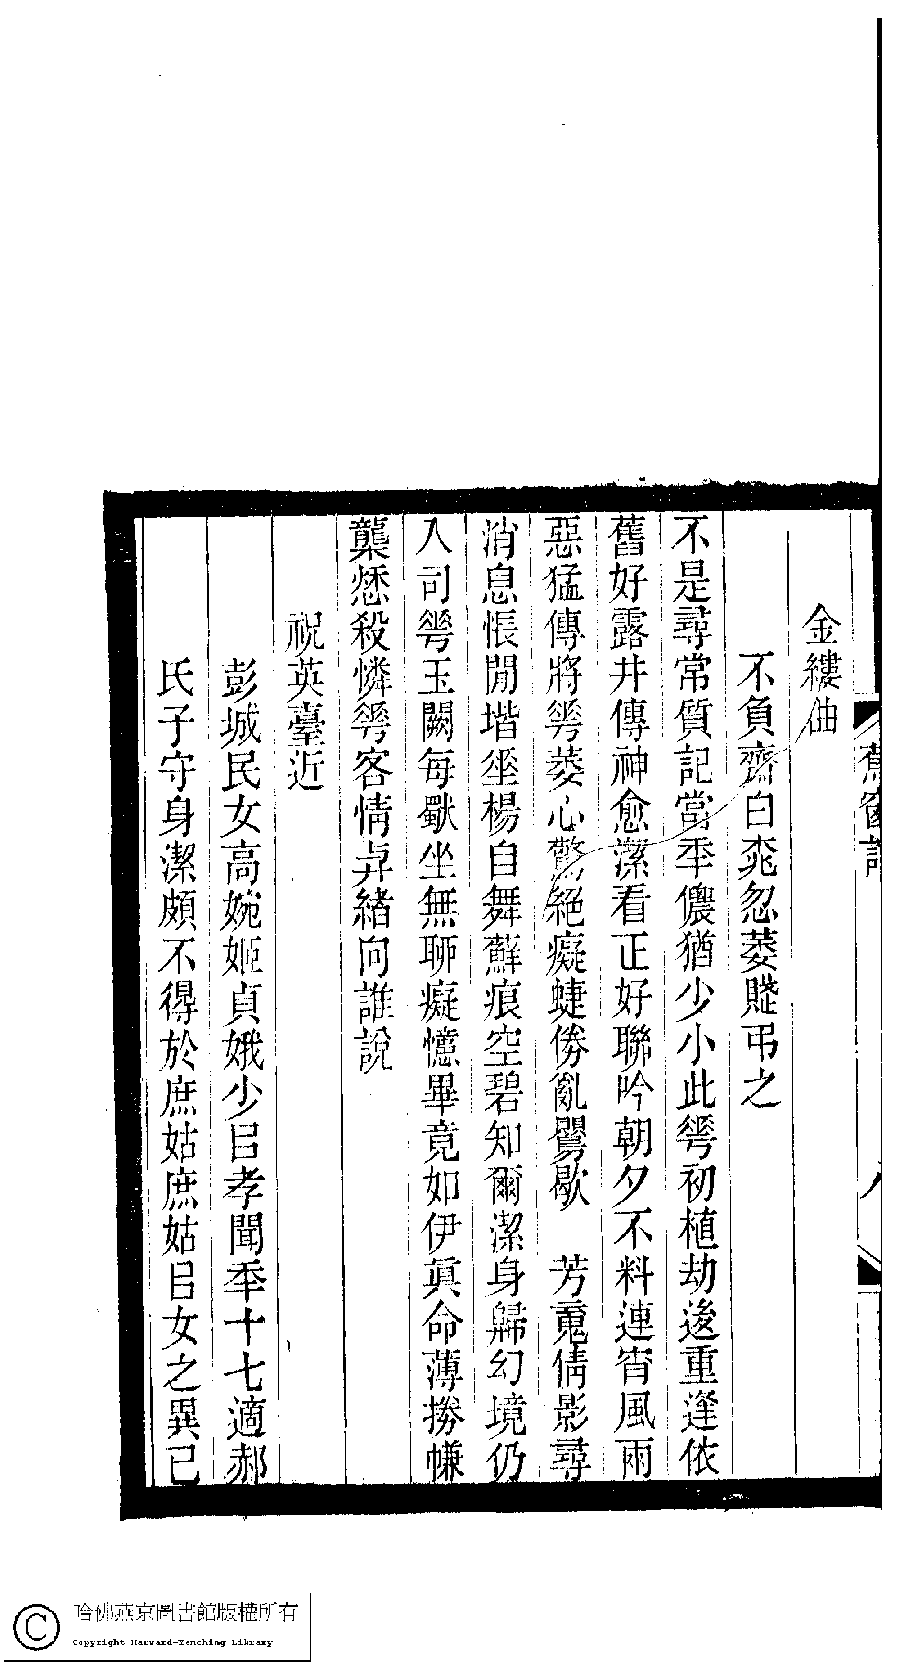 金縷曲
不負齋白桃忽萎賤弔之
不是尋常質記當秊儂猶少小此蕚初植劫後重逢依
舊好露井傳神愈潔看正好聯吟朝夕不料連宵風雨
惡猛傳將蕚萎心驚絕癡蜨傍亂鸎歇　芳䰟倩影尋
消息悵閒堦坐楊白舞蘚痕空碧知爾潔身歸幻境仍
入司蕚玉闕每獸坐無聊癡憶畢竟如伊眞命薄撈㡘
龔㥛殺憐蕚客情歬緒向誰說
祝英臺近
彭城民女高婉姬貞娥少㠯孝聞秊十七適郝
氏子守身潔頗不得於庶姑庶姑㠯女之異己
蕉窗詞
八
哈佛燕京圖書館版權所有
Copyright Harvard-Yenching Library